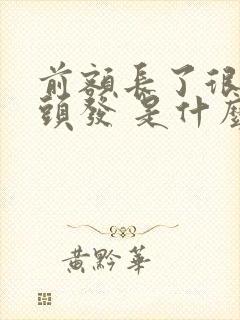 前額長了很
頭發 是什麼
黃黔華